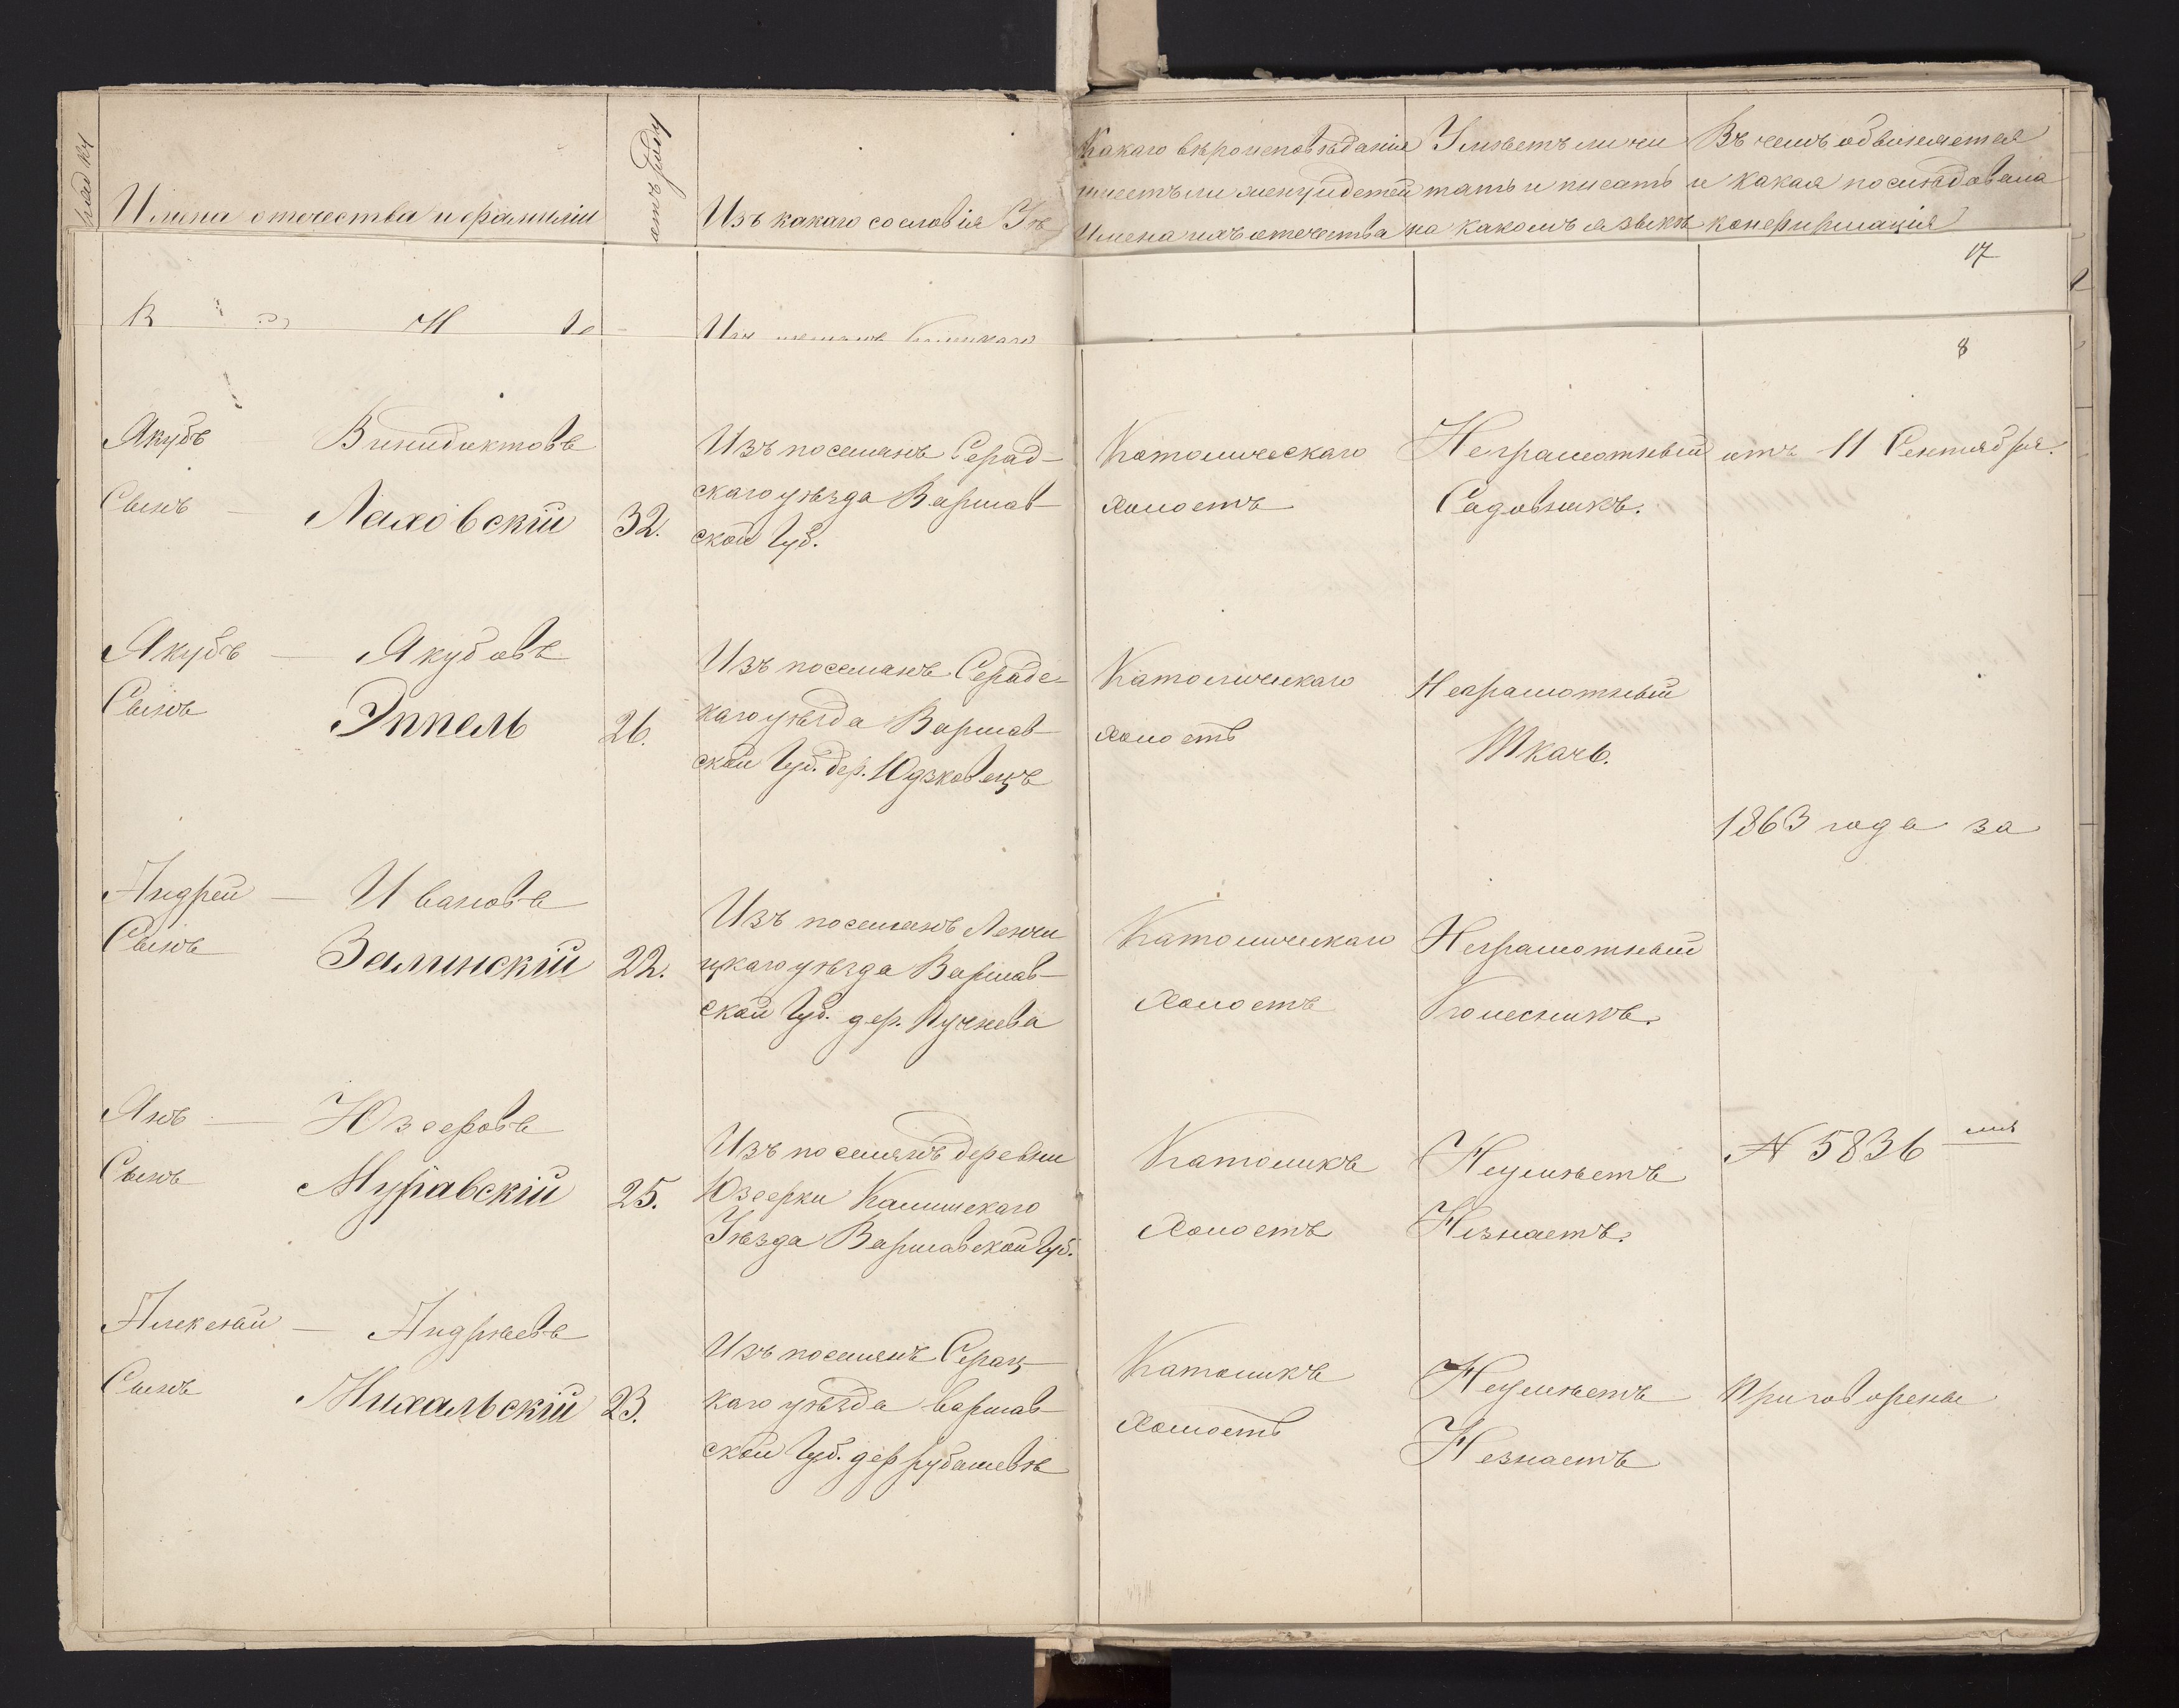 Имена отечества и фамиліи
лѣтъ роду
Изъ какаго сословія
Какаго вѣроисповѣданія
имеетъ ли жену и детей
Имена ихъ отечества
Умѣетъ ли чи
тать и писать
на какомъ языкѣ
Въ чемъ обвиняется
и какая последовала
конфирмація
17
8
Якубъ — Винидиктовъ
Сынъ — Лаховскій
32.
Изъ поселянъ Серад-
скаго уѣзда Варшав-
ской Губ.
Католическаго
холостъ
Неграмотный
Садовникъ.
отъ 11 Сентября.
Якубъ — Якубовъ
Сынъ Эппель
26.
Изъ поселянъ Серадс-
каго уѣзда Варшав-
ской Губ. дер. Юдзковецъ
Католическаго
холостъ
Неграмотный
Ткачь.
1863 года за
Андрей — Ивановъ
Сынъ Залинскій
22.
Изъ поселянъ Ленчи
цкаго уѣзда Варшав-
ской Губ. дер. Пучнева
Католическаго
холостъ
Неграмотный
Колесникъ.
Янъ — Юзефовъ
Сынъ Муравскій
25.
Изъ поселянъ деревни
Юзефки Калишскаго
Уѣзда Варшавской Губ.
Католикъ
Холостъ
Неумѣетъ
Незнаетъ.
№ 5836
Алексѣй — Андрѣевъ
Сынъ Михальскій
23.
Изъ поселянъ Серац-
каго уѣзда варшав-
ской Губ. дер рубашевѣ
Католикъ
Холостъ
Неумѣетъ
Незнаетъ
Приговорены